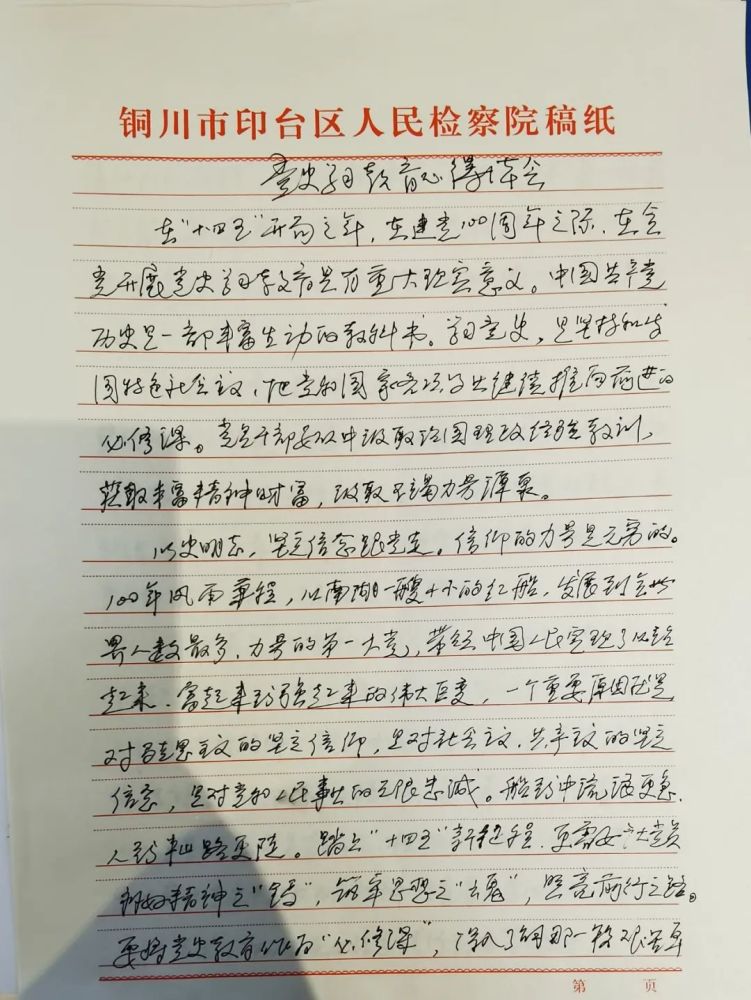 铜川市印台区人民检察院稿纸
党史学习教育心得体会
在“十四五”开局之年，在建党100周年之际，在全
党开展党史学习教育是有重大现实意义。中国共产党
历史是一部丰富生动的教科书。学习党史，是坚持和
国特色社会主义，把党和国家各项事业继续推向前进的
必修课。党员干部要从中汲取治国理政经验教训，
获取丰富精神财富，汲取不竭力量源泉。
以史明志，坚定信念跟党走。信仰的力量是无穷的。
100年风雨草程，从南湖一艘小小的红船，发展到全世
界人数最多、力量的第一大党，带领中国人民实现了从站
起来、富起来到强起来的伟大巨变，一个重要原因就是
对马克思主义的坚定信仰，是对社会主义、共产主义的坚定
信念，是对党和人民事业的无限忠诚。船到中流浪更急、
人到半山路更陡。踏上“十四五”新征程，更需要广大党员
补好精神之“钙”，筑牢思想之“魂”，照亮前行之路。
要将党史教育作为“必修课”，深入了解那一段艰苦卓
第 页